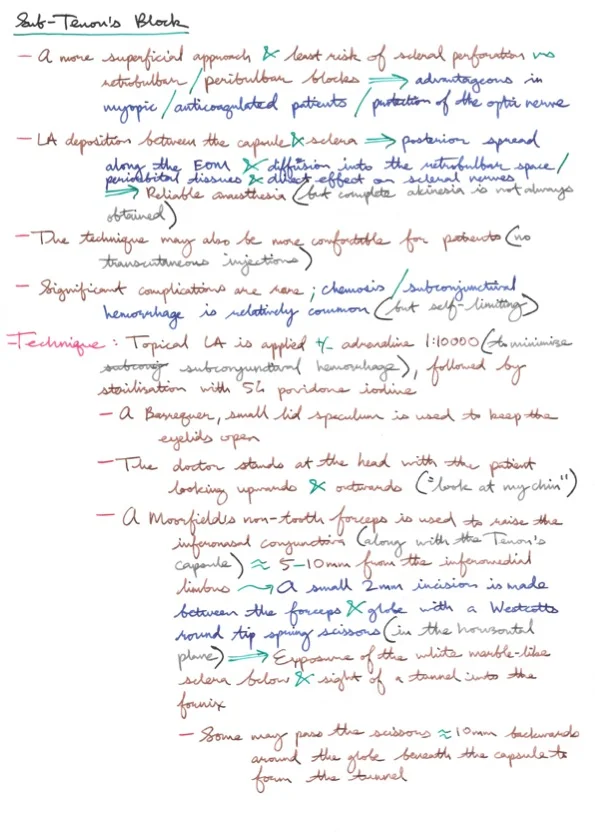 Sub-Tenon's Block
- A more superficial approach & least risk of scleral perforation vs
retrobulbar/peribulbar blocks ⟹ advantageous in
myopic/anticoagulated patients/protection of the optic nerve
- LA deposition between the capsule & sclera ⟹ posterior spread
along the EOM & diffusion into the retrobulbar space/
periorbital tissues & direct effect on scleral nerves
⟹ Reliable anesthesia (but complete akinesia is not always
obtained)
- The technique may also be more comfortable for patients (no
transcutaneous injections)
- Significant complications are rare; chemosis/subconjunctival
hemorrhage is relatively common (but self-limiting)
- Technique: Topical LA is applied +/- adrenaline 1:10000 (to minimize
subconjunctival hemorrhage), followed by
sterilisation with 5% povidone iodine
- A Barraquer, small lid speculum is used to keep the
eyelids open
- The doctor stands at the head with the patient
looking upwards & outwards ("look at my chin")
- A Moorfields non-tooth forceps is used to raise the
inferonasal conjunctiva (along with the Tenon's
capsule) ≈ 5-10mm from the inferomedial
limbus ⇝ A small 2mm incision is made
between the forceps & globe with a Westcotts
round tip spring scissors (in the horizontal
plane) ⟹ Exposure of the white marble-like
sclera below & sight of a tunnel into the
fornix
- Some may pass the scissors ≈ 10mm backwards
around the globe beneath the capsule to
form the tunnel